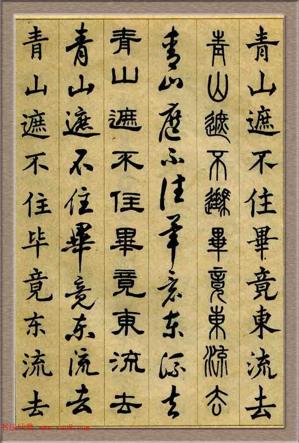 青山遮不住畢竟東流去
青山遮不住畢竟東流去
青山遮不住畢竟東流去
青山遮不住畢竟東流去
青山遮不住畢竟東流去
青山遮不住毕竟东流去